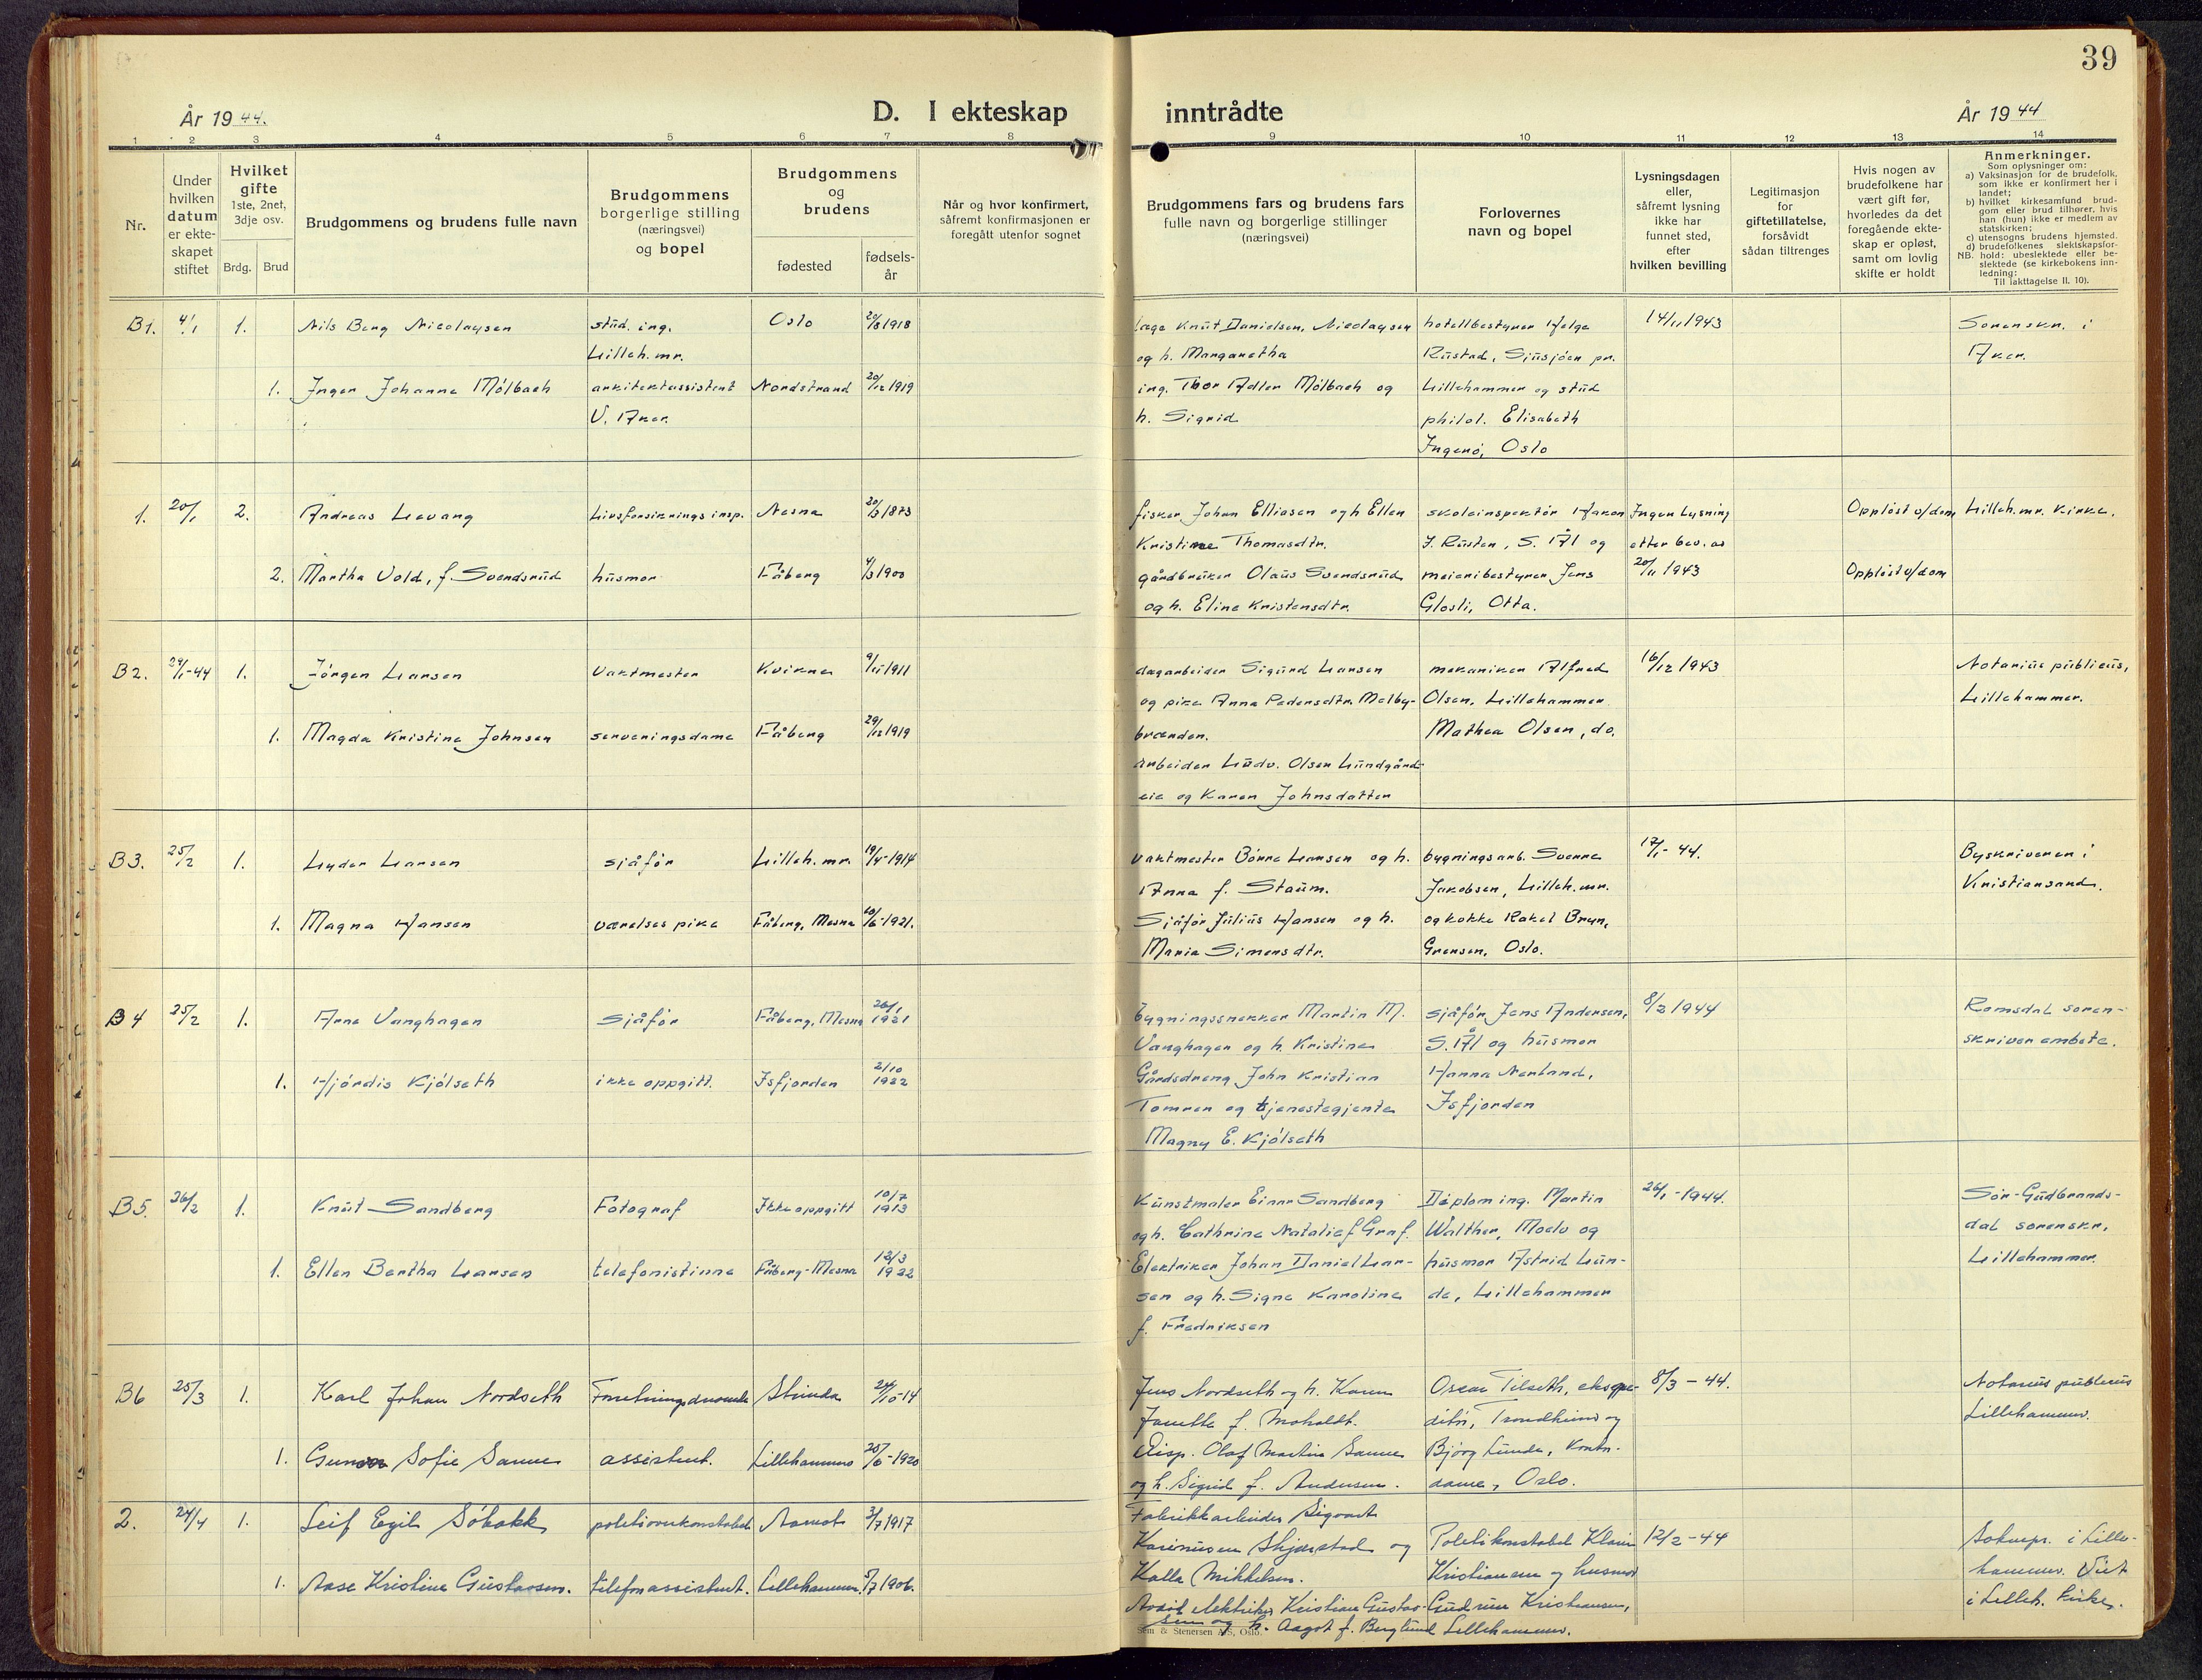 39
År 1944.
D. I ekteskap inntrådte
År 1944
1 2 3 4 5 6 7 8 9 10 11 12 13 14
Nr.
Under
hvilken
datum
er ekte-
skapet
stiftet
Hvilket
gifte
1ste, 2net,
3dje osv.
Brdg. Brud
Brudgommens og brudens fulle navn
Brudgommens
borgerlige stilling
(næringsvei)
og bopel
Brudgommens
og
brudens
fødested
fødsels-
år
Når og hvor konfirmert,
såfremt konfirmasjonen er
foregått utenfor sognet
Brudgommens fars og brudens fars
fulle navn og borgerlige stillinger
(næringsvei)
Forlovernes
navn og bopel
Lysningsdagen
eller,
såfremt lysning
ikke har
funnet sted,
efter
hvilken bevilling
Legitimasjon
for
giftetillatelse,
forsåvidt
sådan tiltrenges
Hvis nogen av
brudefolkene har
vært gift før,
hvorledes da det
foregående ekte-
skap er opløst,
samt om lovlig
skifte er holdt
Anmerkninger.
Som oplysninger om:
a) Vaksinasjon for de brudefolk,
som ikke er konfirmert her i
landet;
b) hvilket kirkesamfund brud-
gom eller brud tilhører, hvis
han (hun) ikke er medlem av
statskirken;
c) utensogns brudens hjemsted.
d) brudefolkenes slektskapsfor-
NB. hold: ubeslektede eller be-
slektede (se kirkebokens inn-
ledning:
Til iakttagelse II. 10).
B1. 4/1 1. Nils Berg Nicolaysen stud. ing. Oslo 20/8 1918
Lilleh.mr.
1. Inger Johanne Mølbach arkitektassistent Nordstrand 20/12 1919
V. Aker.
læge Knut Danielsen Nicolaysen
og h. Margaretha
ing. Thor Adler Mølbach og
h. Sigrid
hotellbestyrer Helge
Rustad, Sjusjøen pr.
Lillehammer og stud
philol. Elisabeth
Ingerø, Oslo
14/11 1943
Sorenskr. i
Aker.
1. 20/1 2. Andreas Levang Livsforsikrings insp. Nesna 20/3 1873
2. Martha Vold, f. Svendsrud husmor Fåberg 4/3 1900
fisker Johan Elliasen og h Ellen
Kristine Thomasdtr.
gårdbruker Olaus Svendsrud
og h. Eline Kristensdtr.
skoleinspektør Håkon
J. Rusten, S. Ål og
meieribestyrer Jens
Glosli, Otta.
Ingen Lysning
etter bev. av
20/11 1943
Oppløst v/dom
Oppløst v/dom
Lilleh.mr. Kirke.
B2. 29/1-44 1. Jørgen Larsen Vaktmester Kvikne 9/11 1911
1. Magda Kristine Johnsen serveringsdame Fåberg 29/12 1919
dagarbeider Sigurd Larsen
og pike Anna Pedersdtr. Melby-
brænden.
Arbeider Ludv. Olsen Lundgård-
eie og Karen Johnsdatter
mekaniker Alfred
Olsen, Lillehammer
Mathea Olsen, do.
16/12 1943
Notarius publicus,
Lillehammer.
B3. 25/2 1. Lyder Larsen sjåfør Lilleh.mr. 19/4-1914
1. Magna Hansen værelsespike Fåberg, Mesna 20/6-1921.
vaktmester Børre Larsen og h.
Anna f. Staum.
Sjåfør Julius Hansen og h.
Maria Simensdtr.
bygningsarb. Sverre
Jakobsen, Lilleh.mr.
og kokke Rakel Bryn,
Grensen, Oslo.
12/1-44.
Byskriveren i
Kristiansand.
B4 25/2 1. Arne Vanghagen sjåfør Fåberg, Mesna 26/1 1921
1. Hjørdis Kjølseth ikke oppgitt. Isfjorden 2/10 1922
bygningssnekker Martin M.
Vanghagen og h. Kristine
Gårdsdreng John Kristian
Tomren og tjenestegjente
Magny E. Kjølseth
sjåfør Jens Andersen,
S. Ål og husmor
Hanna Nerland,
Isfjorden
8/2 1944
Romsdal soren-
skriverembete.
B5. 26/2 1. Knut Sandberg Fotograf Ikke oppgitt 10/7 1913
1. Ellen Bertha Larsen telefonistinne Fåberg-Mesna 12/3 1922
Kunstmaler Einar Sandberg
og h. Cathrine Natalie f Graf.
Elektriker Johan Daniel Lar-
sen og h. Signe Karoline
f. Fredriksen
Diplom ing. Martin
Walther, Moelv og
husmor Astrid Lun-
de, Lillehammer
26/1-1944.
Sør-Gudbrands-
dal sorenskr,
Lillehammer.
B6 25/3 1. Karl Johan Nordseth Forretningsdrivende Strinda 24/10-14
1. Gunvor Sofie Sanne assistent. Lillehammer 25/6-1920
Jens Nordseth og h. Karen
Janette f. Moholdt.
Disp. Olaf Martin Sanne
og h. Sigrid f. Andersen.
Oscar Tilseth, ekspe-
ditør, Trondheim og
Bjørg Lunde, kontor-
dame, Oslo.
8/3 - 44.
Notarius publicus
Lillehammer.
2. 24/4 1. Leif Egil Søbakk politioverkonstabel Aamot 3/7 1917
1. Aase Kristine Gustavsen. telefonassistent. Lillehammer. 5/7 1906.
Fabrikkarbeider Sigvart
Karinusen Skjærstad og
Kalla Mikkelsen.
Avdød elektriker Kristian Gustav-
sen og h. Aagot f. Berglund
Politikonstabel Klaus
Kristiansen og husmor
Gudrun Kristiansen,
Lillehammer.
12/2-44
Soknepr. i Lille-
hammer. Viet
i Lilleh. kirke.
Sem & Stenersen A/S, Oslo.